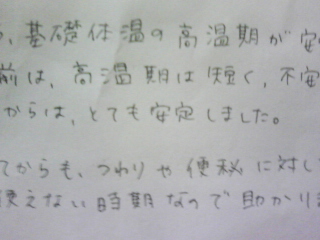 、基礎体温の高温期が安
前は、高温期は短く、不安
からは、とても安定しました。
てからも、つわりや便秘に対し
使えない時期なので助かりま